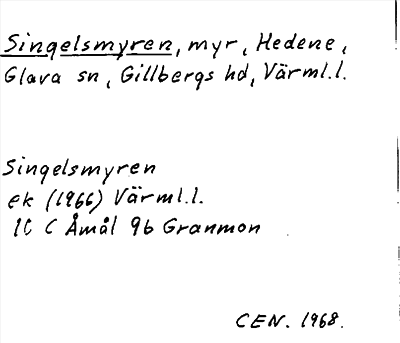 Singelsmyren, myr, Hedene,
Glava sn, Gillbergs hd, Värml.l.
Singelsmyren
ek (1966) Värml.l.
10 C Åmål 9b Granmon
CEN. 1968.